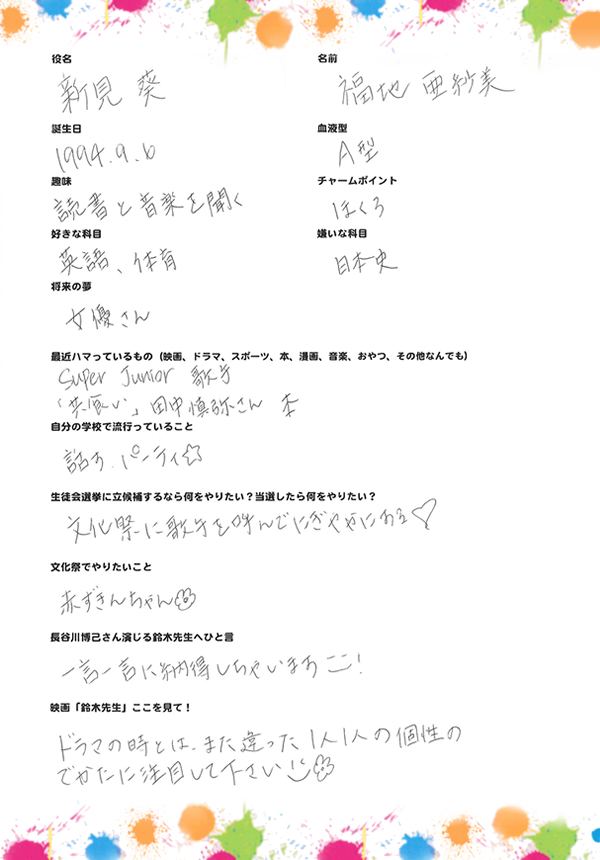 役名
新見 葵
名前
福地 亜紗美
誕生日
1994.9.6
血液型
A型
趣味
読書と音楽を聞く
チャームポイント
ほくろ
好きな科目
英語、体育
嫌いな科目
日本史
将来の夢
女優さん
最近ハマっているもの(映画、ドラマ、スポーツ、本、漫画、音楽、おやつ、その他なんでも)
Super Junior 歌手
「共喰い」田中慎弥さん 本
自分の学校で流行っていること
話す、パーティ☆
生徒会選挙に立候補するなら何をやりたい?当選したら何をやりたい?
文化祭に歌手を呼んでにぎやかにする♡
文化祭でやりたいこと
赤ずきんちゃん
長谷川博己さん演じる鈴木先生へひと言
一言一言に納得しちゃいます!
映画「鈴木先生」ここを見て!
ドラマの時とは、また違った1人1人の個性の
でかたに注目して下さい